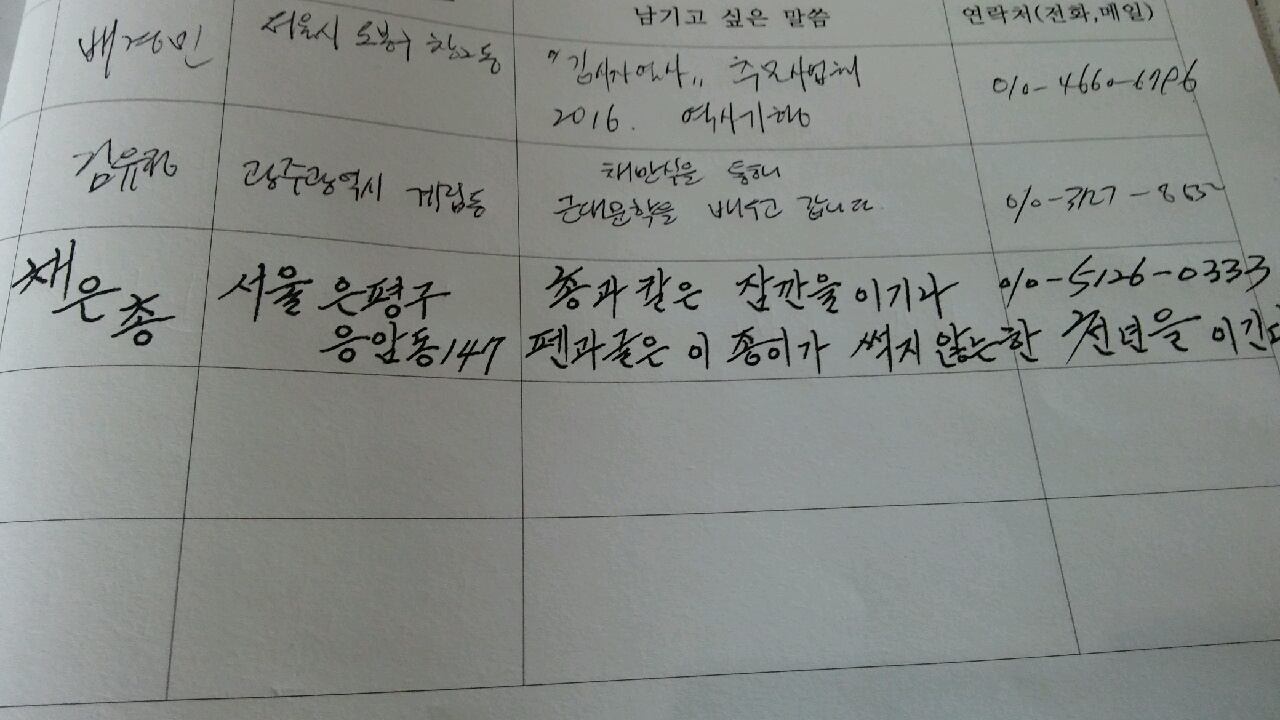 남기고 싶은 말씀 연락처(전화,메일)
배경민 서울시 도봉구 창2동 "김시자열사" 추모사업회 010-4660-6796
2016. 역사기행
김유정 광주광역시 계림동 채만식을 통해 010-3127-
근대문학을 배우고 갑니다.
채은총 서울 은평구 총과 칼은 잠깐을 이기나 010-5126-0333
응암동147 펜과 글은 이 종이가 썩지않는한 천년을 이긴다